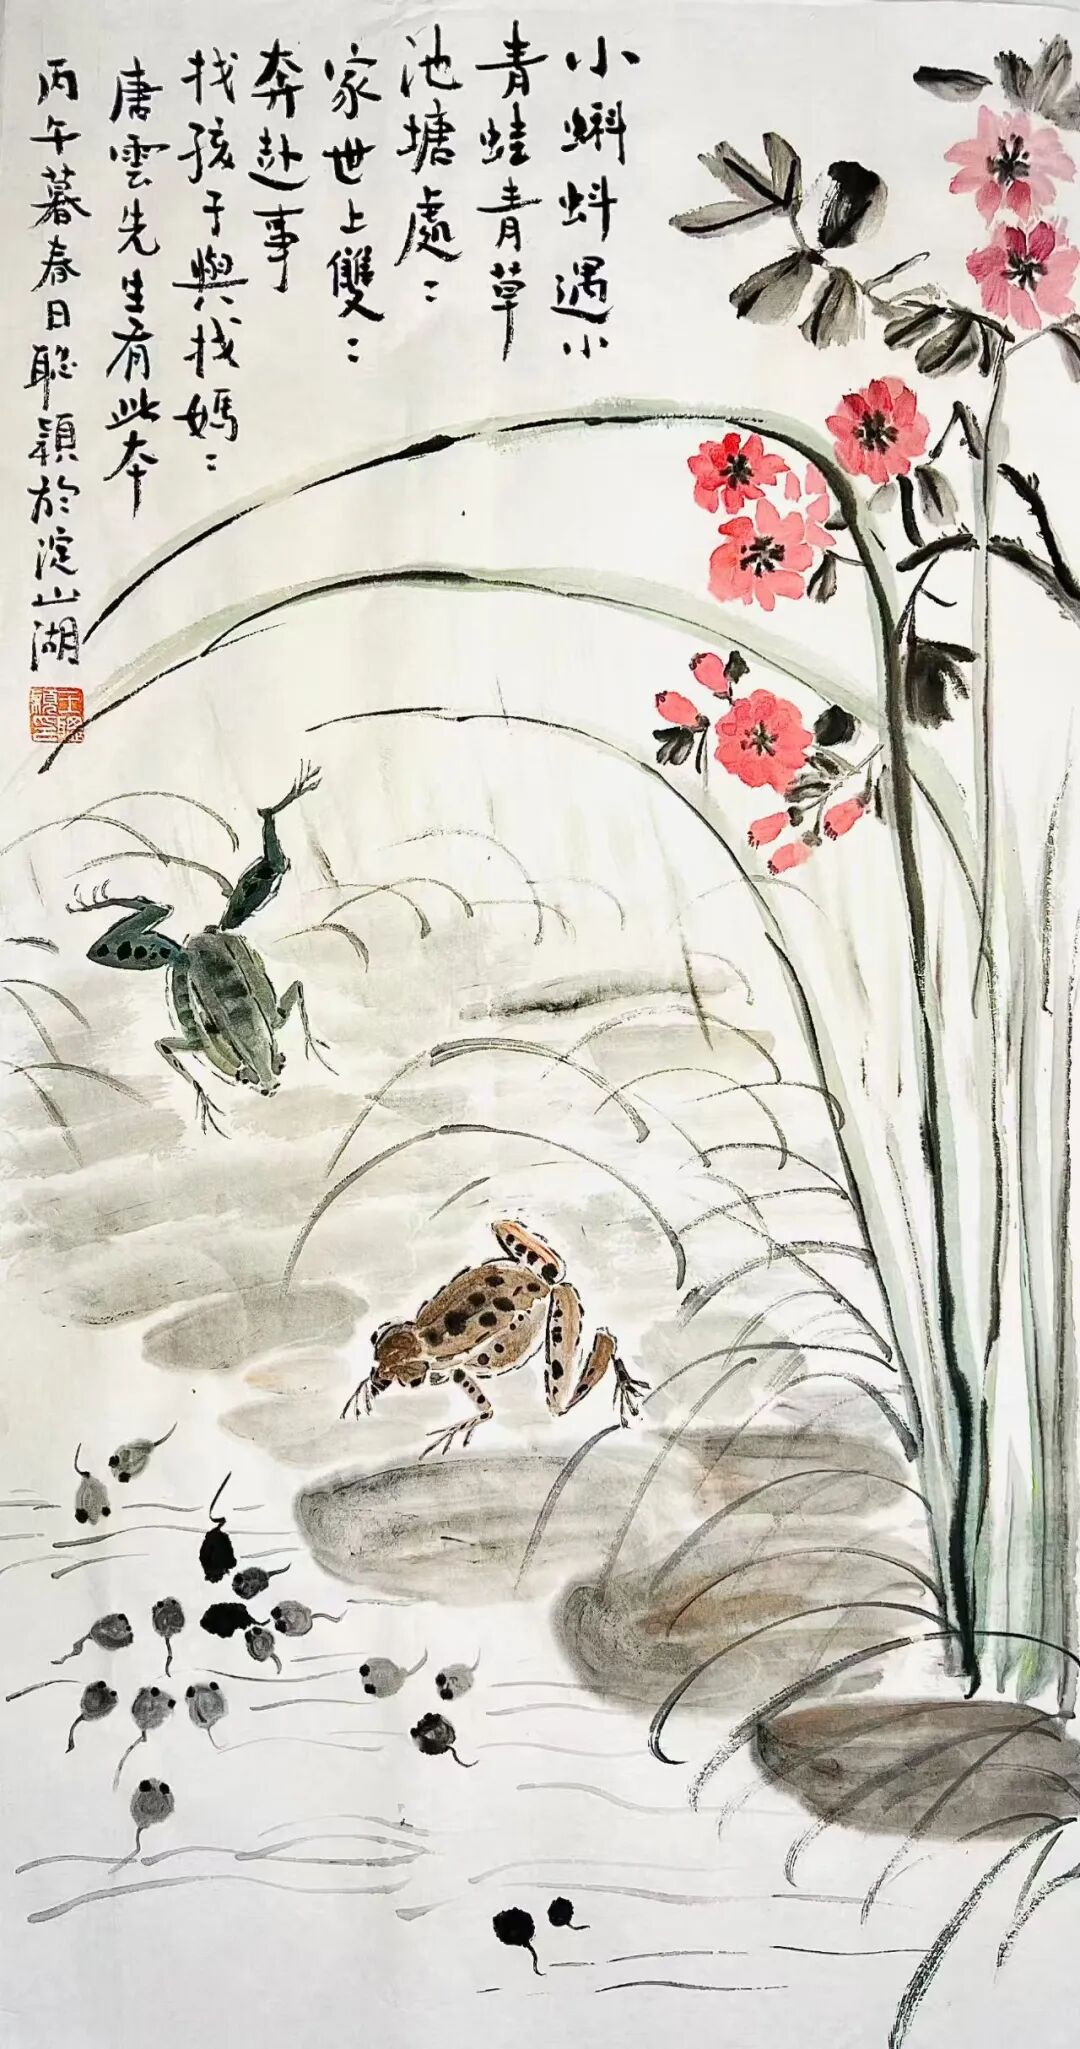 小蝌蚪遇小
青蛙青草
池塘處：
家世上雙：
奔赴事
找孩于與找媽：
唐雲先生有此本
丙午暮春日聪颖於淀山湖
王聰穎印